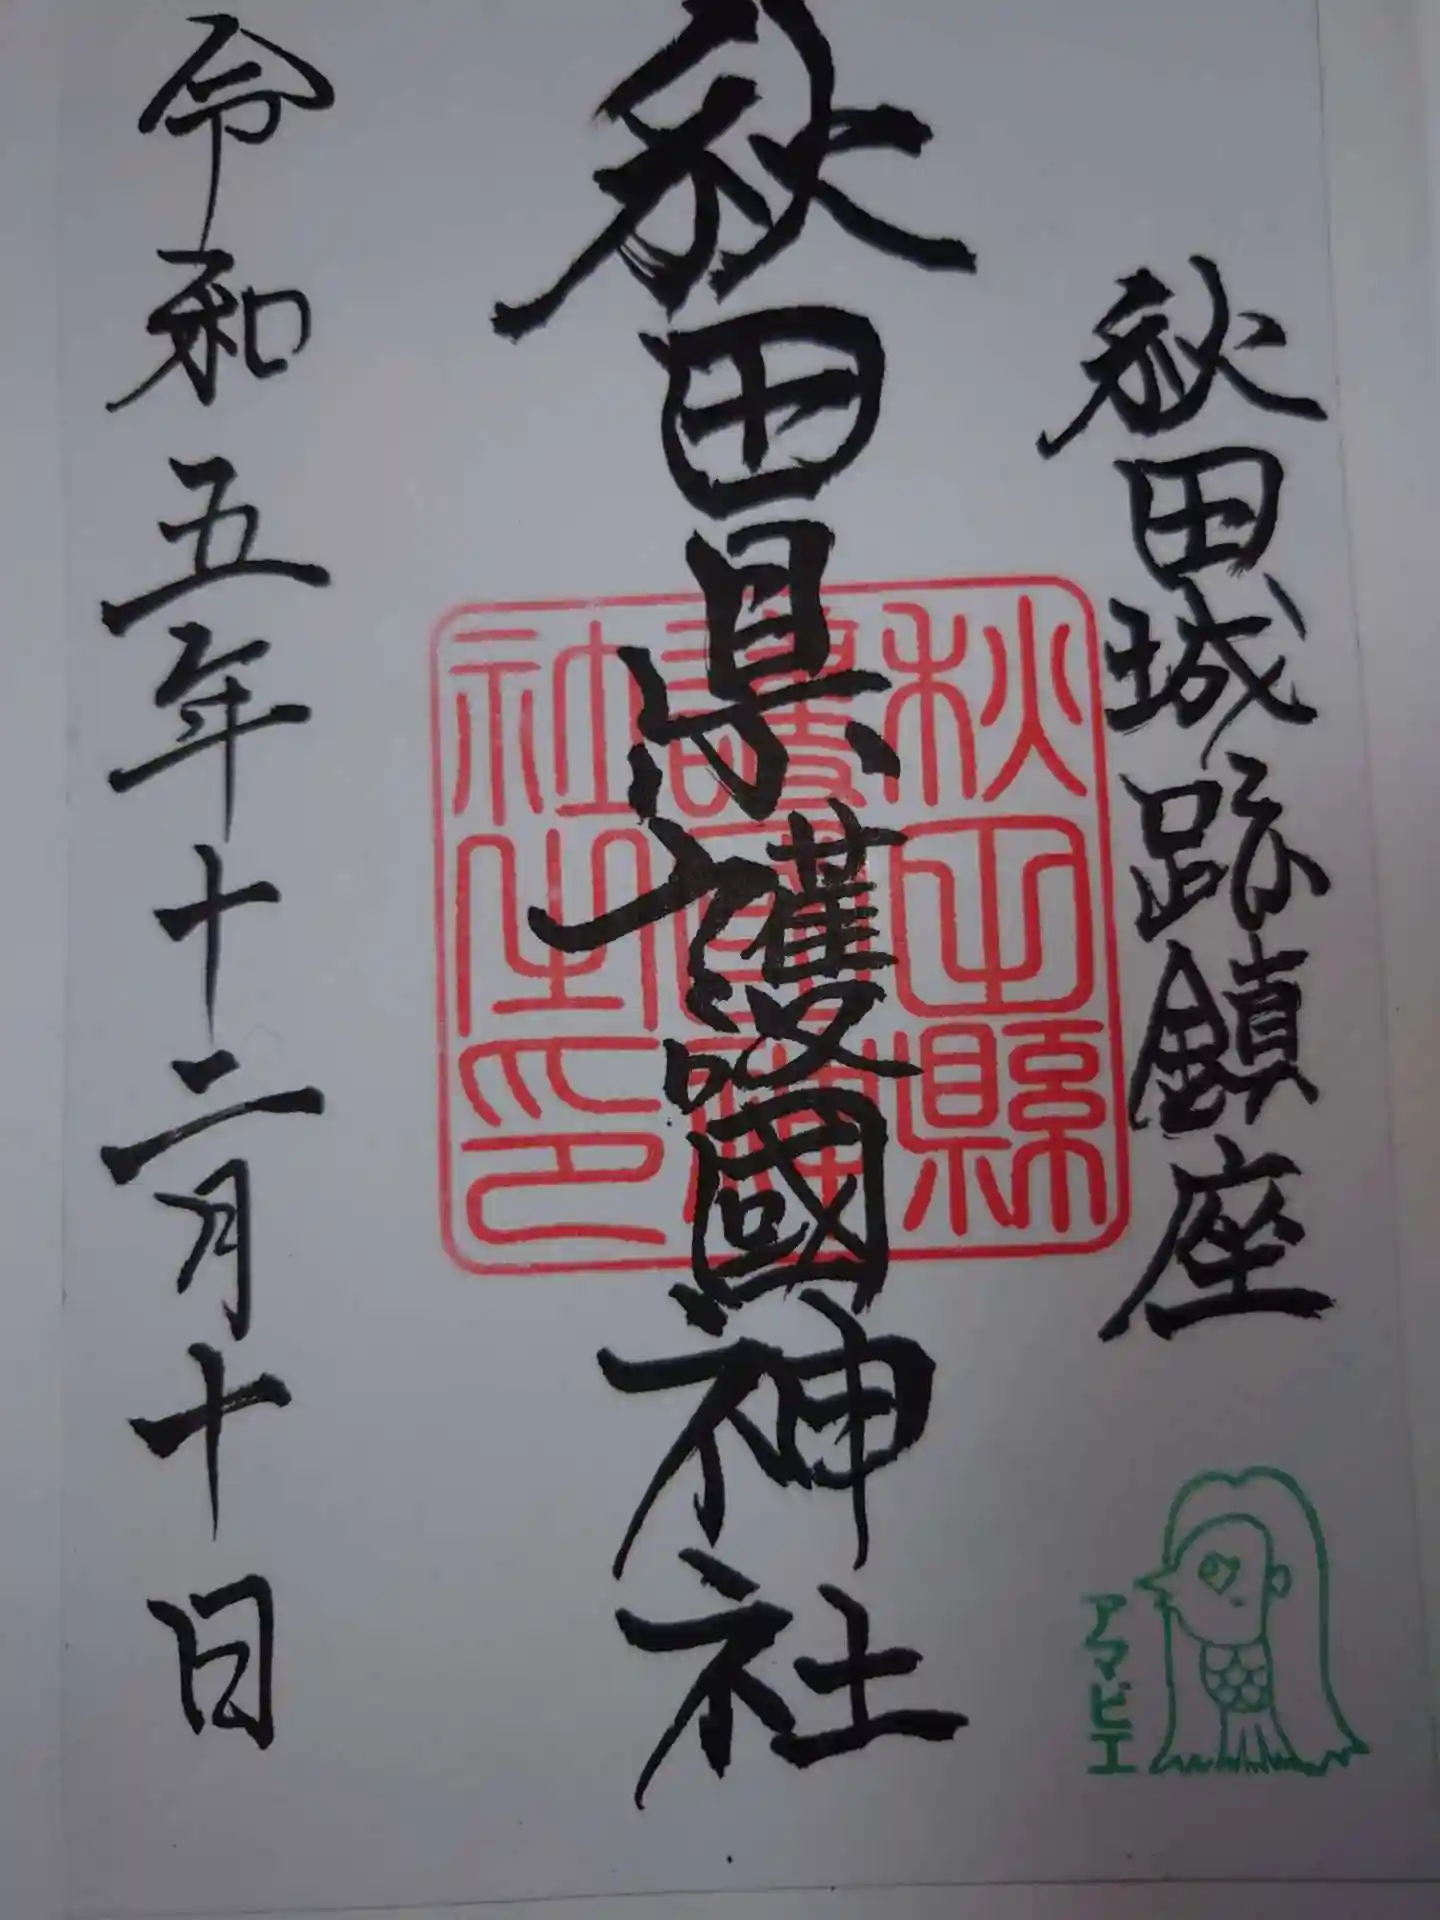 秋田城跡鎮座
秋田県護國神社
秋田縣
護國神
社之印
令和五年十二月十日
アマビエ